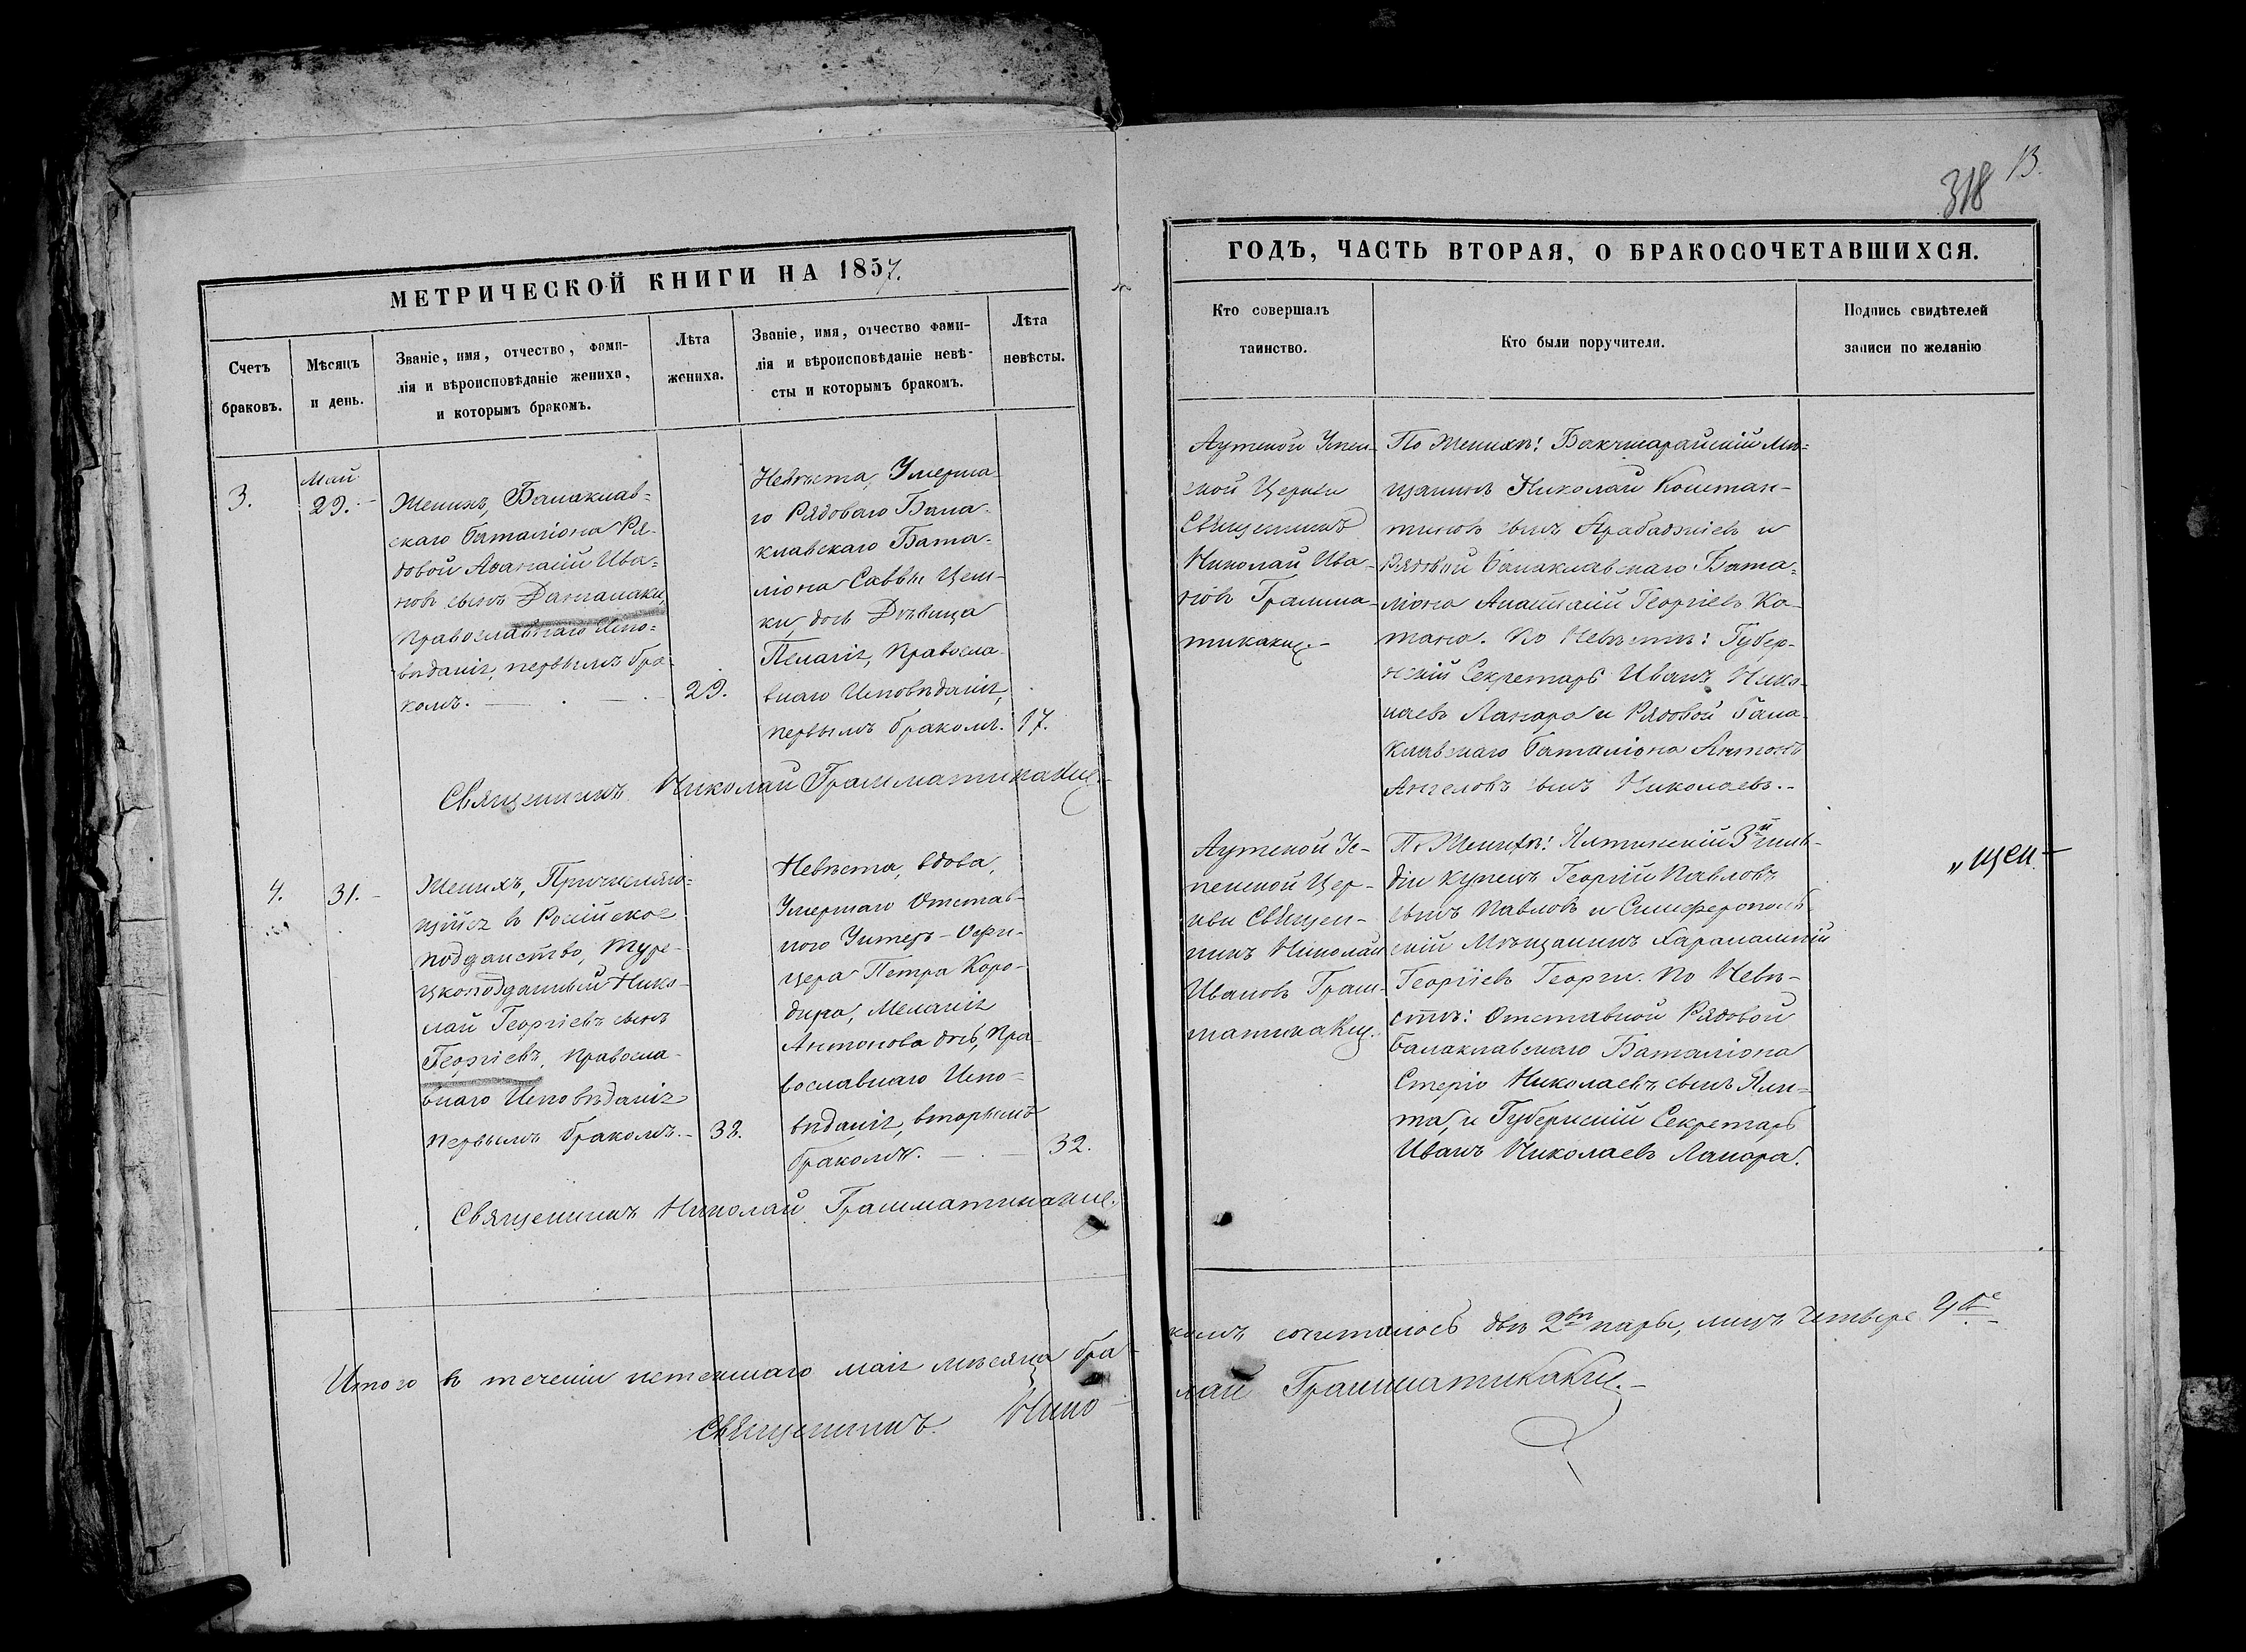 318
13.
МЕТРИЧЕСКОЙ КНИГИ НА 1857.
ГОДЪ, ЧАСТЬ ВТОРАЯ, О БРАКОСОЧЕТАВШИХСЯ.
Счетъ
браковъ.
Мѣсяцъ
и день.
Званіе, имя, отчество, фами-
лія и вѣроисповѣданіе жениха,
и которымъ бракомъ.
Лѣта
жениха.
Званіе, имя, отчество фами-
лія и вѣроисповѣданіе невѣ-
сты и которымъ бракомъ.
Лѣта
невѣсты.
Кто совершалъ
таинство.
Кто были поручители.
Подпись свидѣтелей
записи по желанію
3.
Май
29.
Женихъ, Балаклав=
скаго баталіона Ря-
довой Аѳанасій Ива=
новъ сынъ
Православнаго Испо=
вѣданія, первымъ бра-
комъ.
29.
Невѣста, Умерша-
го Рядоваго Бала-
клавскаго Бата-
ліона Саввы Цели-
ки дочь Дѣвица
Пелагія, Правосла-
внаго Исповѣданія,
первымъ бракомъ.
17.
Аутской Успен-
ской Церкви
Священникъ
Николай Ива-
новъ Грамма-
тикаки.
По Женихѣ: Бахчисарайскій Мѣ=
щанинъ Николай Констан-
тиновъ сынъ Арабаджіевъ и
Рядовой Балаклавскаго Бата=
ліона Анастасій Георгіевъ Ка-
тано. По Невѣстѣ: Губер-
нскій Секретарь Иванъ Нико-
лаевъ Лапара и Рядовой Бала-
клавскаго баталіона Антонъ
Ангеловъ сынъ Николаевъ.
Священникъ Николай Грамматикаки.
4.
31.
Женихъ, Причисляю-
щійся въ Россійское
подданство, Туре-
цкоподданный Нико-
лай Георгіевъ сынъ
Георгіевъ, Правосла-
внаго Исповѣданія
первымъ бракомъ.
38.
Невѣста, вдова,
Умершаго Отстав-
ного Унтеръ-Офи-
цера Петра
Меланія
Антонова дочь, Пра-
вославнаго Испо-
вѣданія, вторымъ
бракомъ.
32.
Аутской Ус-
пенской Цер-
кви Священ-
никъ Николай
Ивановъ Грам-
матикаки.
По Женихѣ: Ялтинскій 3й гиль-
діи купецъ Георгій Павловъ
сынъ Павловъ и Симферополь-
скій Мѣщанинъ Харалампій
Георгіевъ Георги. По Невѣ-
стѣ: Отставной Рядовой
Балаклавскаго Баталіона
Стеріо Николаевъ сынъ Яли-
та, и Губернскій Секретарь
Иванъ Николаевъ Лапара.
„щен-
Священникъ Николай Грамматикаки.
Итого въ теченіи истекшаго мая мѣсяца бра-
комъ сочеталось двѣ 2вѣ пары, лицъ четверо 4ро
Священникъ Нико-
лай Грамматикаки.